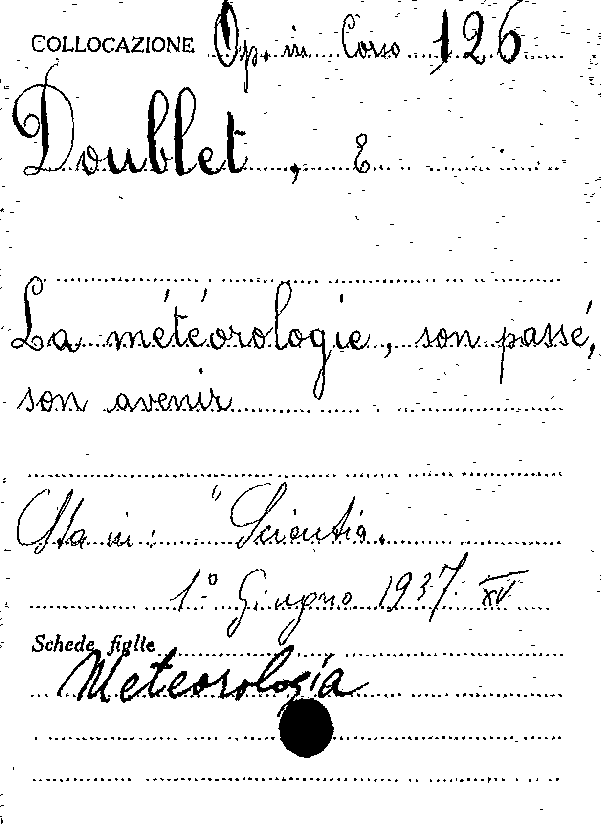 COLLOCAZIONE Op. in Corso 126
Doublet, E
La météorologie, son passé,
son avenir
Sta in: "Scientia.
1º Giugno 1937 XV
Schede figlie
Meteorologia